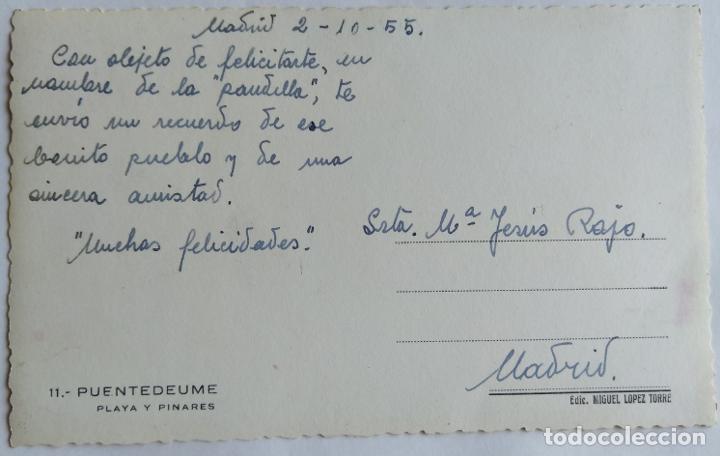 Madrid 2-10-55.
Con objeto de felicitarte, en
nombre de la "pandilla", te
envío un recuerdo de ese
bonito pueblo y de una
sincera amistad.
"Muchas felicidades".
Srta. Mª Jesús Rajo.
Madrid.
11.- PUENTEDEUME
PLAYA Y PINARES
Edic. MIGUEL LOPEZ TORRE
todocoleccion.net